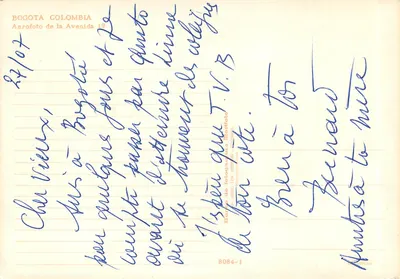 BOGOTA COLOMBIA
Aerofoto de la Avenida
27/07
Cher Vieux,
suis à Bogotá
pour quelques jours et je
compte passer par Quito
avant d'atteindre Lima
où se trouvent des collègues
J'espère que T.V.B
de côté.
Bien à toi
Bernard
Amitiés à ta mère